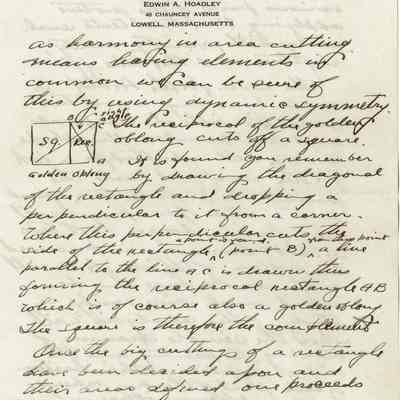 EDWIN A. HOADLEY
48 CHAUNCEY AVENUE
LOWELL, MASSACHUSETTS
as harmony in area cutting
means having elements in
common we can be sure of
this by using dynamic symmetry.
The reciprocal of the golden
oblong cuts off a square.
Sq. Rec.
Golden Oblong
It is found you remember
by drawing the diagonal
of the rectangle and dropping a
perpendicular to it from a corner.
Where this perpendicular cuts the
side of the rectangle, a point is found (point B) from this point a line
parallel to the line AC is drawn thus
forming the reciprocal rectangle AB
which is of course also a golden oblong
The square is therefore the complement
Once the big cuttings of a rectangle
have been decided upon and
their areas defined one proceeds